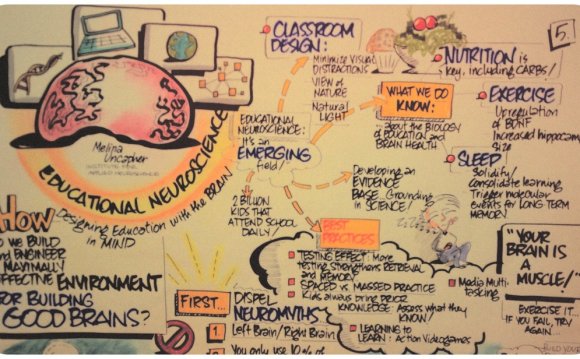 5.
CLASSROOM
DESIGN:
Minimize Visual
DISTRACTIONS
VIEW of
NATURE
Natural
LIGHT
NUTRITION is
key, including CARBS!
WHAT WE DO
KNOW:
...about the BIOLOGY
of EDUCATION and
BRAIN HEALTH
EXERCISE
Upregulation
of BDNF
Increased hippocam
size
SLEEP
Solidify/
Consolidate learning
Trigger molecular
events for LONG TERM
MEMORY
Melina
Uncapher
INSTITUTE FOR
APPLIED NEUROSCIENCE
EDUCATIONAL NEUROSCIENCE
Designing Education with the BRAIN
in MIND
EDUCATIONAL
NEUROSCIENCE:
It's an
EMERGING
field!
2 BILLION
KIDS THAT
ATTEND SCHOOL
DAILY!
Developing an
EVIDENCE
BASE. Grounding
in SCIENCE!
HOW
DO WE BUILD
and ENGINEER
MAXIMALLY
EFFECTIVE ENVIRONMENT
FOR BUILDING
GOOD BRAINS?
BEST
PRACTICES
TESTING EFFECT: More
testing strengthens RETRIEVAL
and MEMORY
SPACED vs MASSED PRACTICE
Kids always bring PRIOR
KNOWLEDGE. Assess what they
KNOW!
LEARNING to
LEARN: Action Videogames
Media Multi-
tasking
"YOUR
BRAIN is
A MUSCLE!"
EXERCISE IT.
IF YOU FAIL, TRY
AGAIN...
BUILD YOUR
FIRST...
DISPEL
NEUROMYTHS
1. Left Brain/Right Brain
You only use 10% of